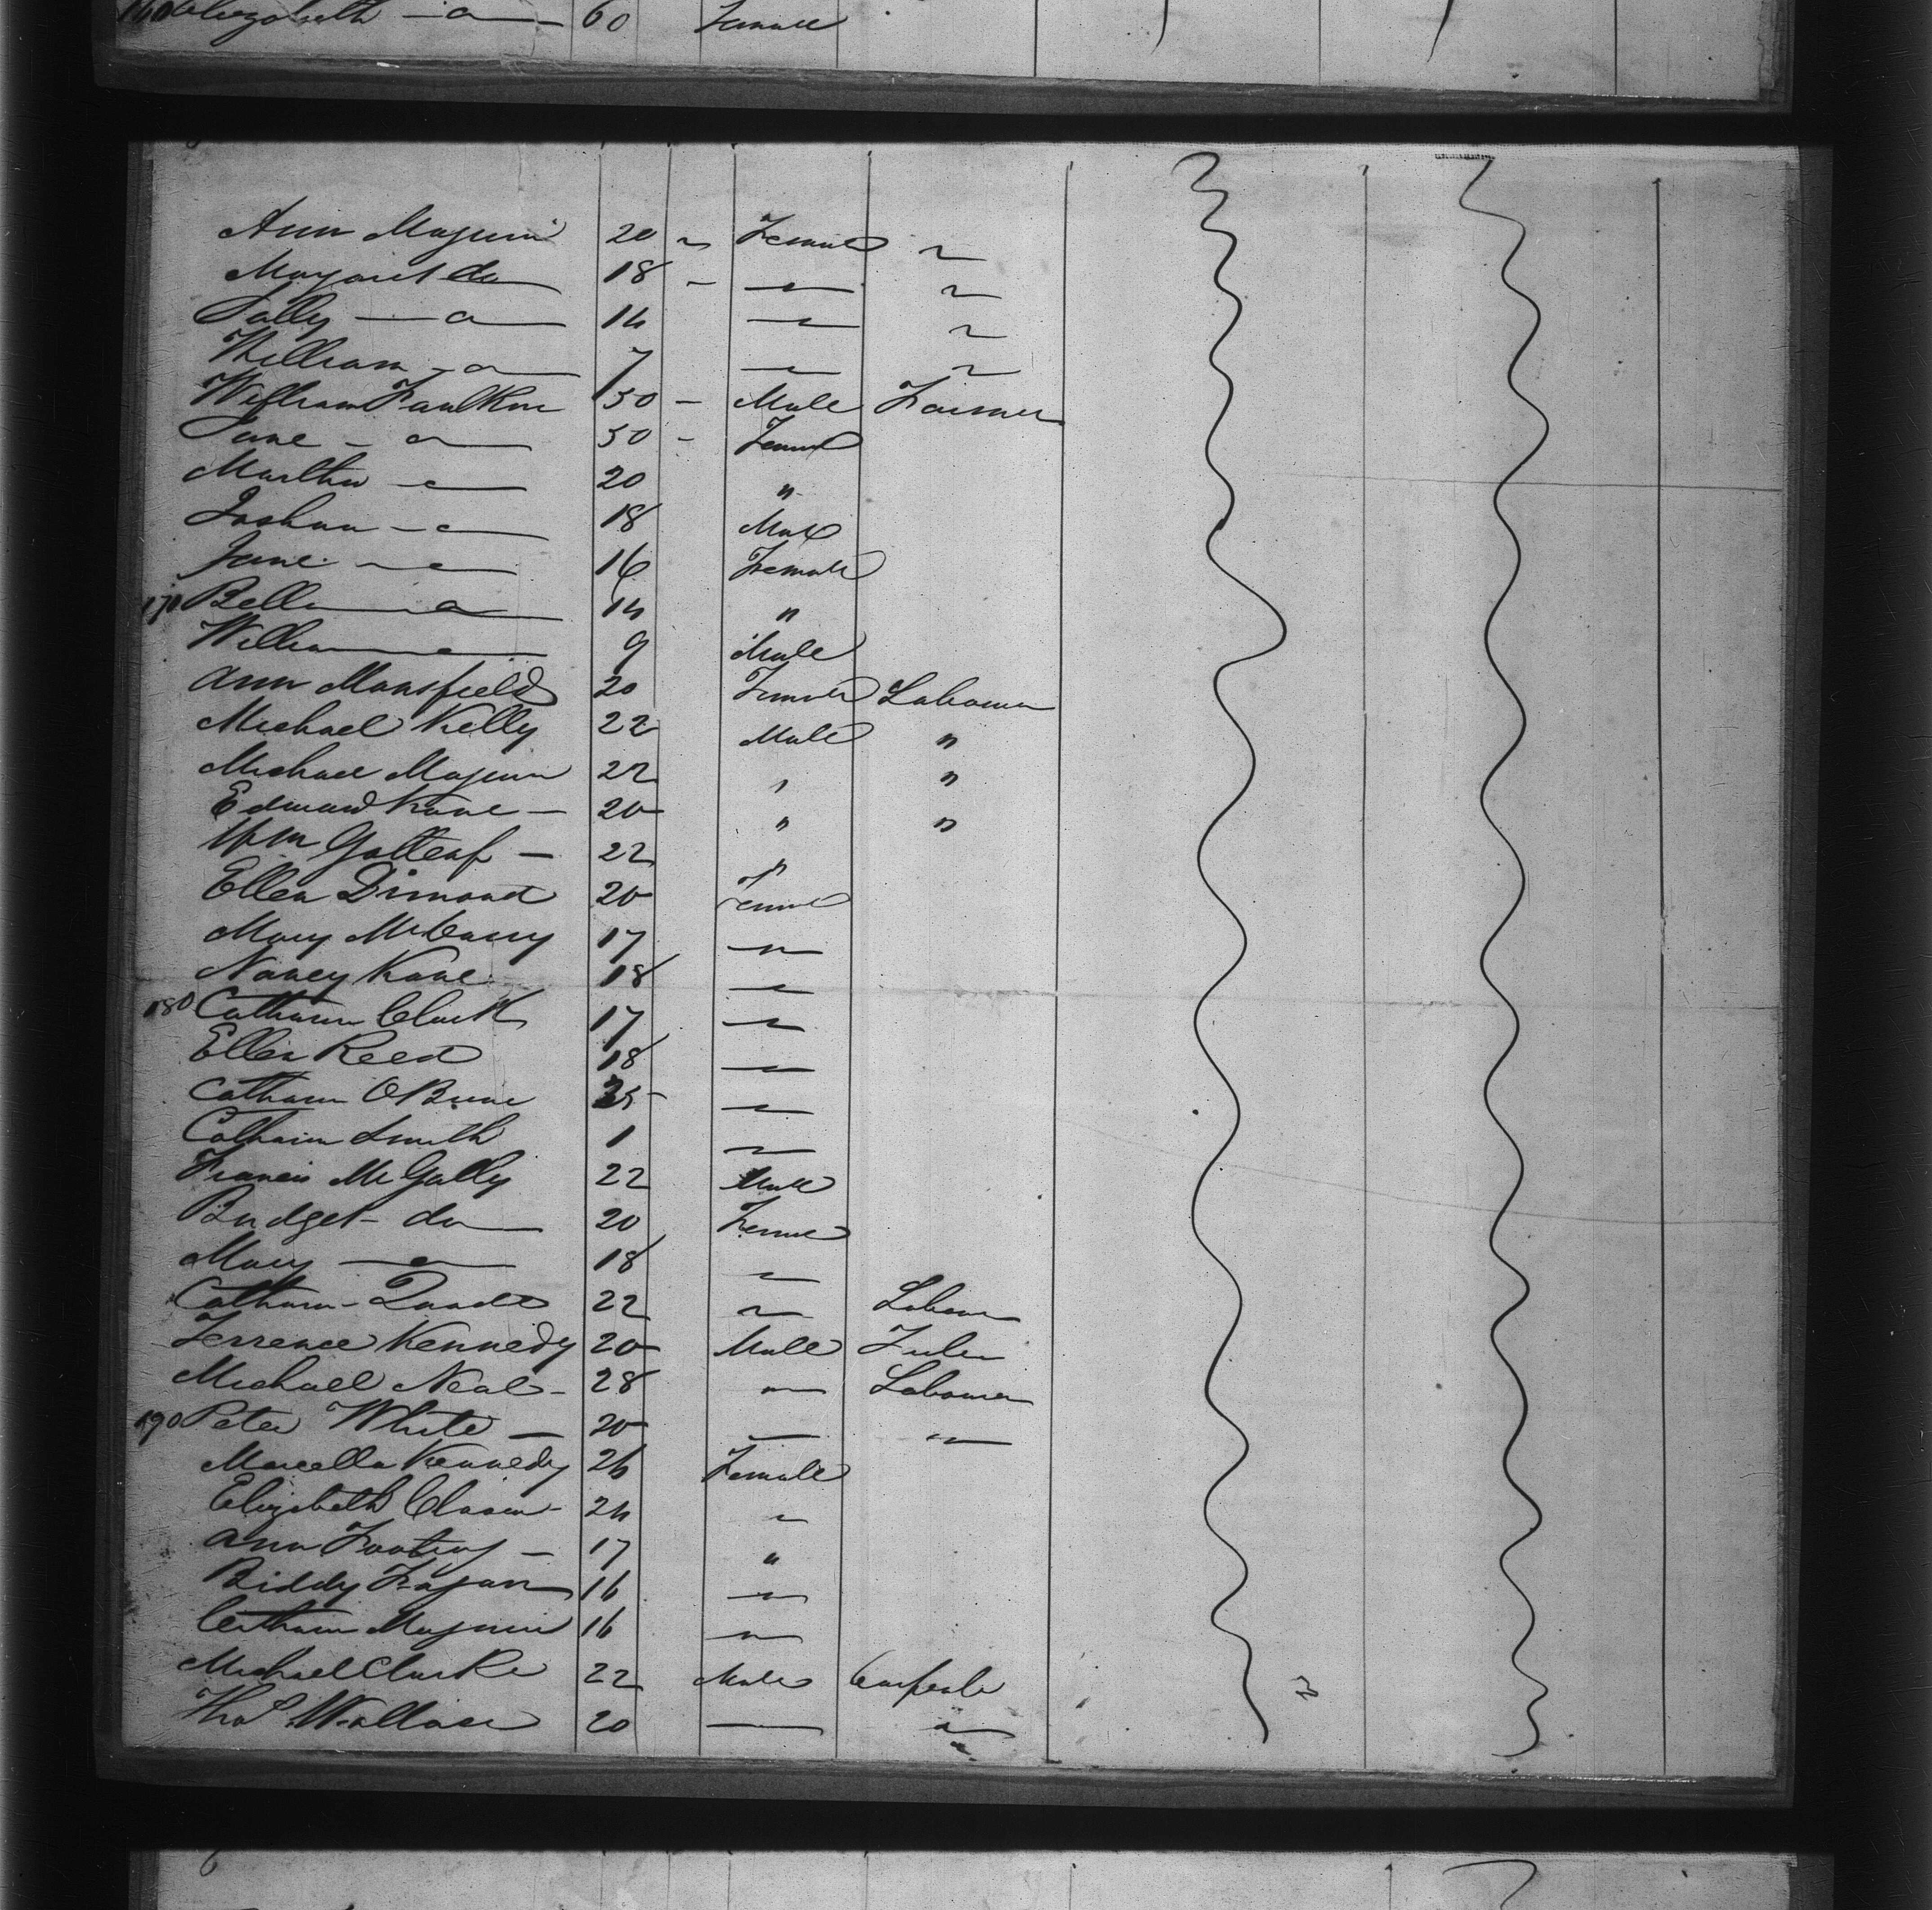 160 Elizabeth — a — 60 Female
Ann Maguire 20 " Female "
Margaret do 18 - " "
Sally — a — 14 " "
William - a — 7 " "
William Faulkner 50 - Male Farmer
Jane - a — 50 - Female
Martha — 20 "
Joshua — 18 Male
Jane — 16 Female
170 Bella — a — 14 "
William — 9 Male
Ann Mansfield 20 Female Labourer
Michael Kelly 22 Male "
Michael Maguire 22 " "
Edward Kane — 20 " "
Wm — 22 "
Ellen Dimond 20 Female
Mary 17 "
Nancy Kane 18 "
180 Catharine Clark 17 "
Ellen Reed 18 "
Catharine OBrine 25 "
Catharine Smith 1 "
Francis McGally 22 Male
Bridget - do — 20 Female
Mary — 18 "
Catharine - 22 " Labourer
Terrence Kennedy 20 Male
Michael Neal - 28 " Labourer
190 Peter White — 20 — "
Marcella Kennedy 26 Female
Elizabeth 24 "
Ann — 17 "
Biddy Fagan 16 "
Catharine Maguire 16 "
Michael Clarke 22 Male Carpenter
Thos Wallace 20 — "
6